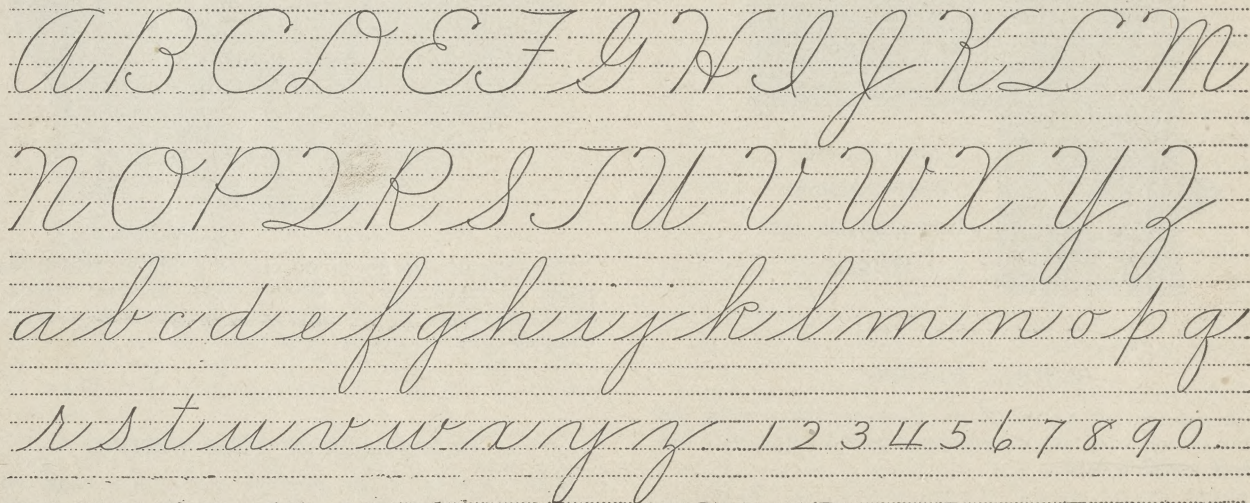 A B C D E F G H I J K L M
N O P Q R S T U V W X Y Z
a b c d e f g h i j k l m n o p q
r s t u v w x y z 1 2 3 4 5 6 7 8 9 0.